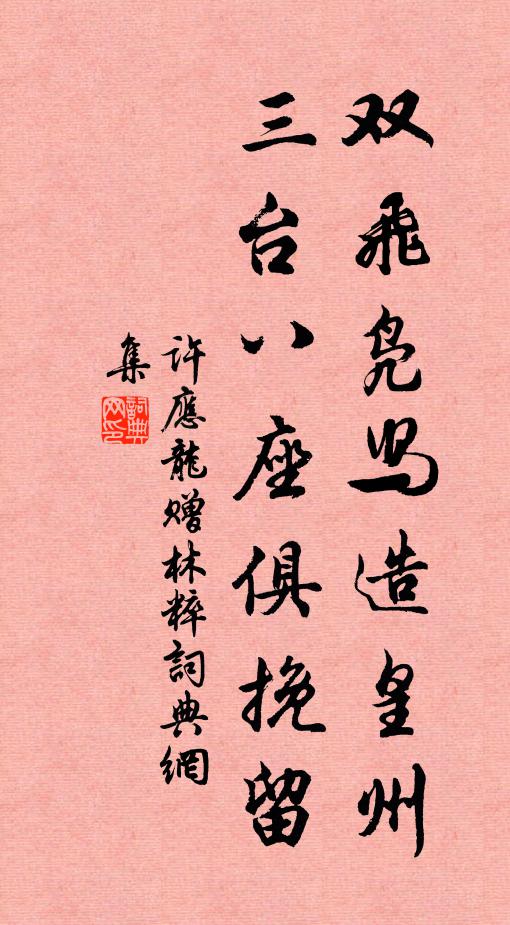 双飛凫舄造皇州
三台八座俱挽留
許應龍贈林粹詞典網
集
詞典網印